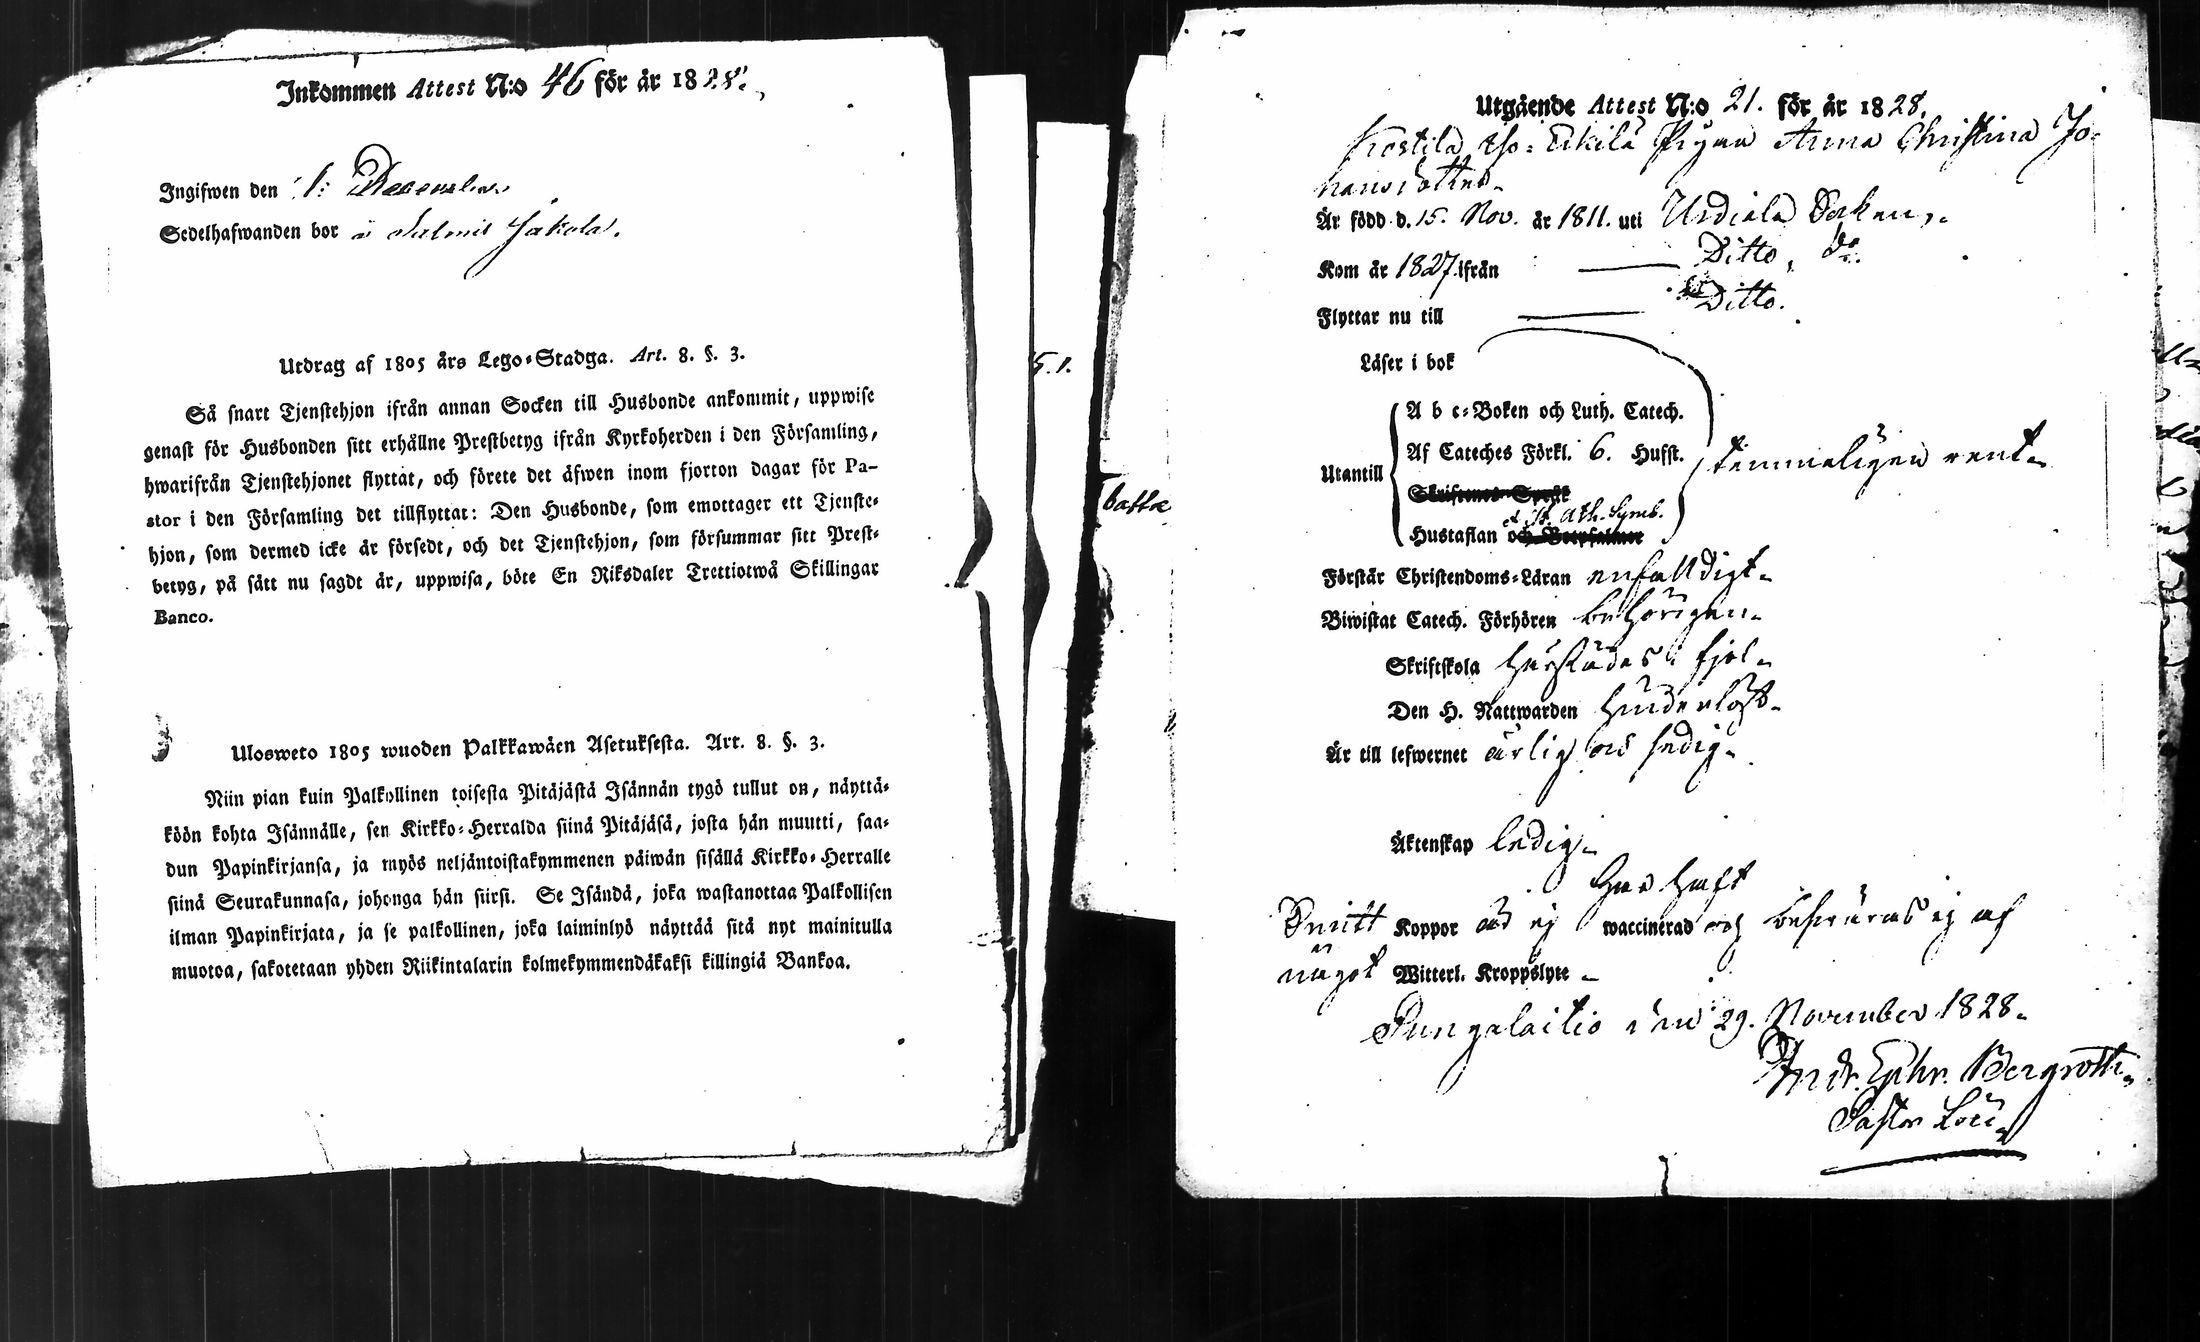 Inkommen Attest N:o 46 för år 1828.
Ingifwen den 1: December
Sedelhafwanden bor å Salmis Jakola.
Utdrag af 1805 års Lego-Stadga. Art. 8. §. 3.
Så snart Tjenstehjon ifrån annan Socken till Husbonde ankommit, uppwise
genast för Husbonden sitt erhållne Prestbetyg ifrån Kyrkoherden i den Församling,
hwarifrån Tjenstehjonet flyttat, och förete det äfwen inom fjorton dagar för Pa-
stor i den Församling det tillflyttat: Den Husbonde, som emottager ett Tjenste-
hjon, som dermed icke är försedt, och det Tjenstehjon, som försummar sitt Prest-
betyg, på sätt nu sagdt är, uppwisa, böte En Riksdaler Trettiotwå Skillingar
Banco.
Ulosweto 1805 wuoden Palkkawäen Asetuksesta. Art. 8. §. 3.
Niin pian kuin Palkollinen toisesta Pitäjästä Isännän tygö tullut on, näyttä-
köön kohta Isännälle, sen Kirkko-Herralda siinä Pitäjäsä, josta hän muutti, saa-
dun Papinkirjansa, ja myös neljäntoistakymmenen päiwän sisällä Kirkko-Herralle
siinä Seurakunnasa, johonga hän siirsi. Se Isändä, joka wastanottaa Palkollisen
ilman Papinkirjata, ja se palkollinen, joka laiminlyö näyttää sitä nyt mainitulla
muotoa, sakotetaan yhden Riikintalarin kolmekymmendäkaksi killingiä Bankoa.
5.1.
Utgående Attest N:o 21. för år 1828.
Pigan Anna Christina Jo-
hansdotter
Är född d. 15. Nov. år 1811. uti Urdiala Socken,
Kom år 1827 ifrån Ditto, do.
Flyttar nu till Ditto.
Läser i bok
A b c-Boken och Luth. Catech.
Af Cateches Förkl. 6. Hufst.
Utantill temmeligen rent
Skriftenes Språk
et St. Ath. Symb.
Hustaflan och Botpsalmer
Förstår Christendoms-Läran enfalldigt
Biwistat Catech. Förhören behörigen
Skriftskola härstädes i fjol
Den H. Nattwarden hinderlöst
Är till lefwernet ärlig och sedig
Äktenskap ledig
har haft
Koppor är ej waccinerad och beswäras ej af
något Witterl. Kroppslyte
Pungalaitio den 29. November 1828.
Andr. Ephr. Bergroth
Pastor Loci